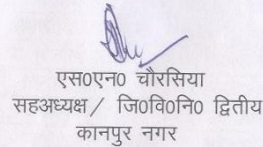 एस0एन0 चौरसिया
सहअध्यक्ष / जि0वि0नि0 द्वितीय
कानपुर नगर